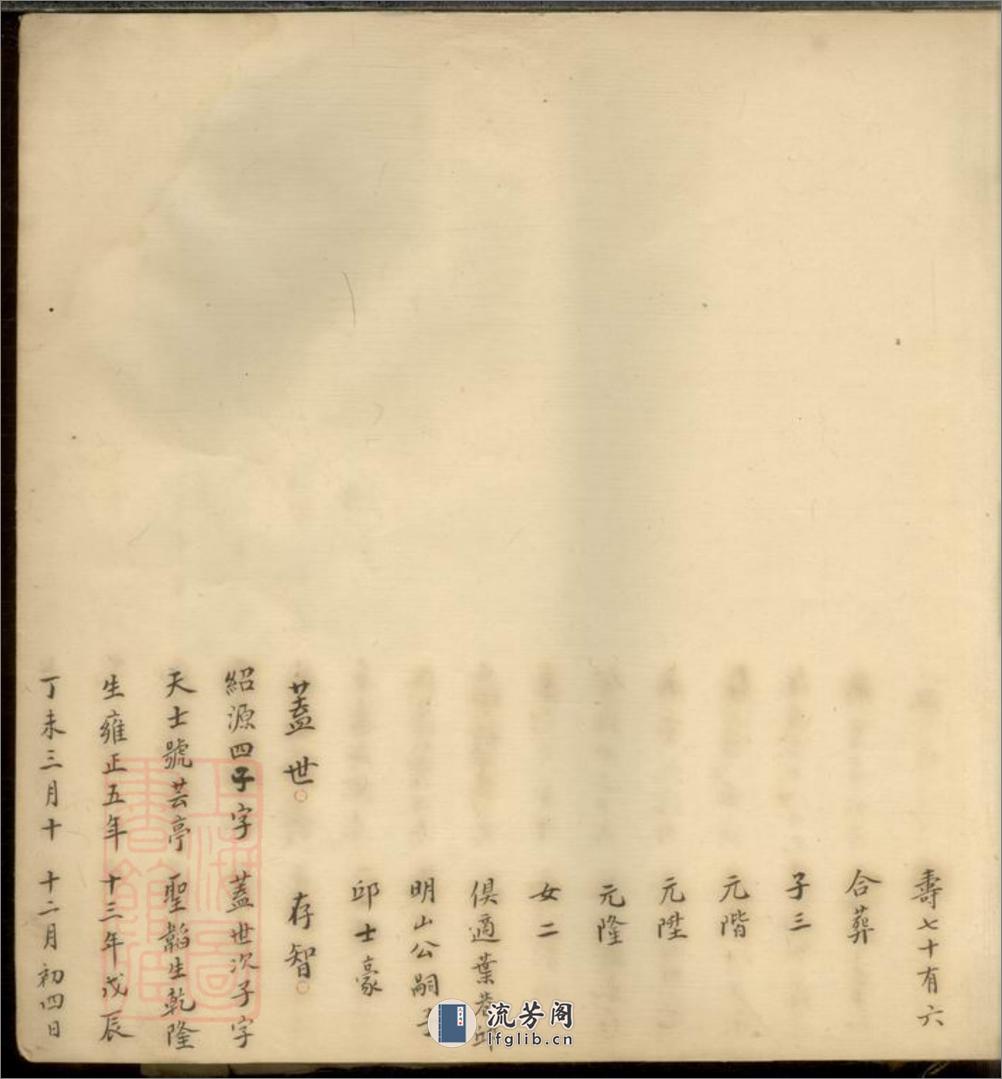 蓋世
紹源四子字
天士號芸亭
生雍正五年
丁未三月十
壽七十有六
合葬
子三
元階
元陞
元隆
女二
俱適葉巷邱
明山公嗣子
邱士豪
存智
蓋世次子字
聖韜生乾隆
十三年戊辰
十二月初四日
上海圖
書館藏
流芳阁
lfglib.cn